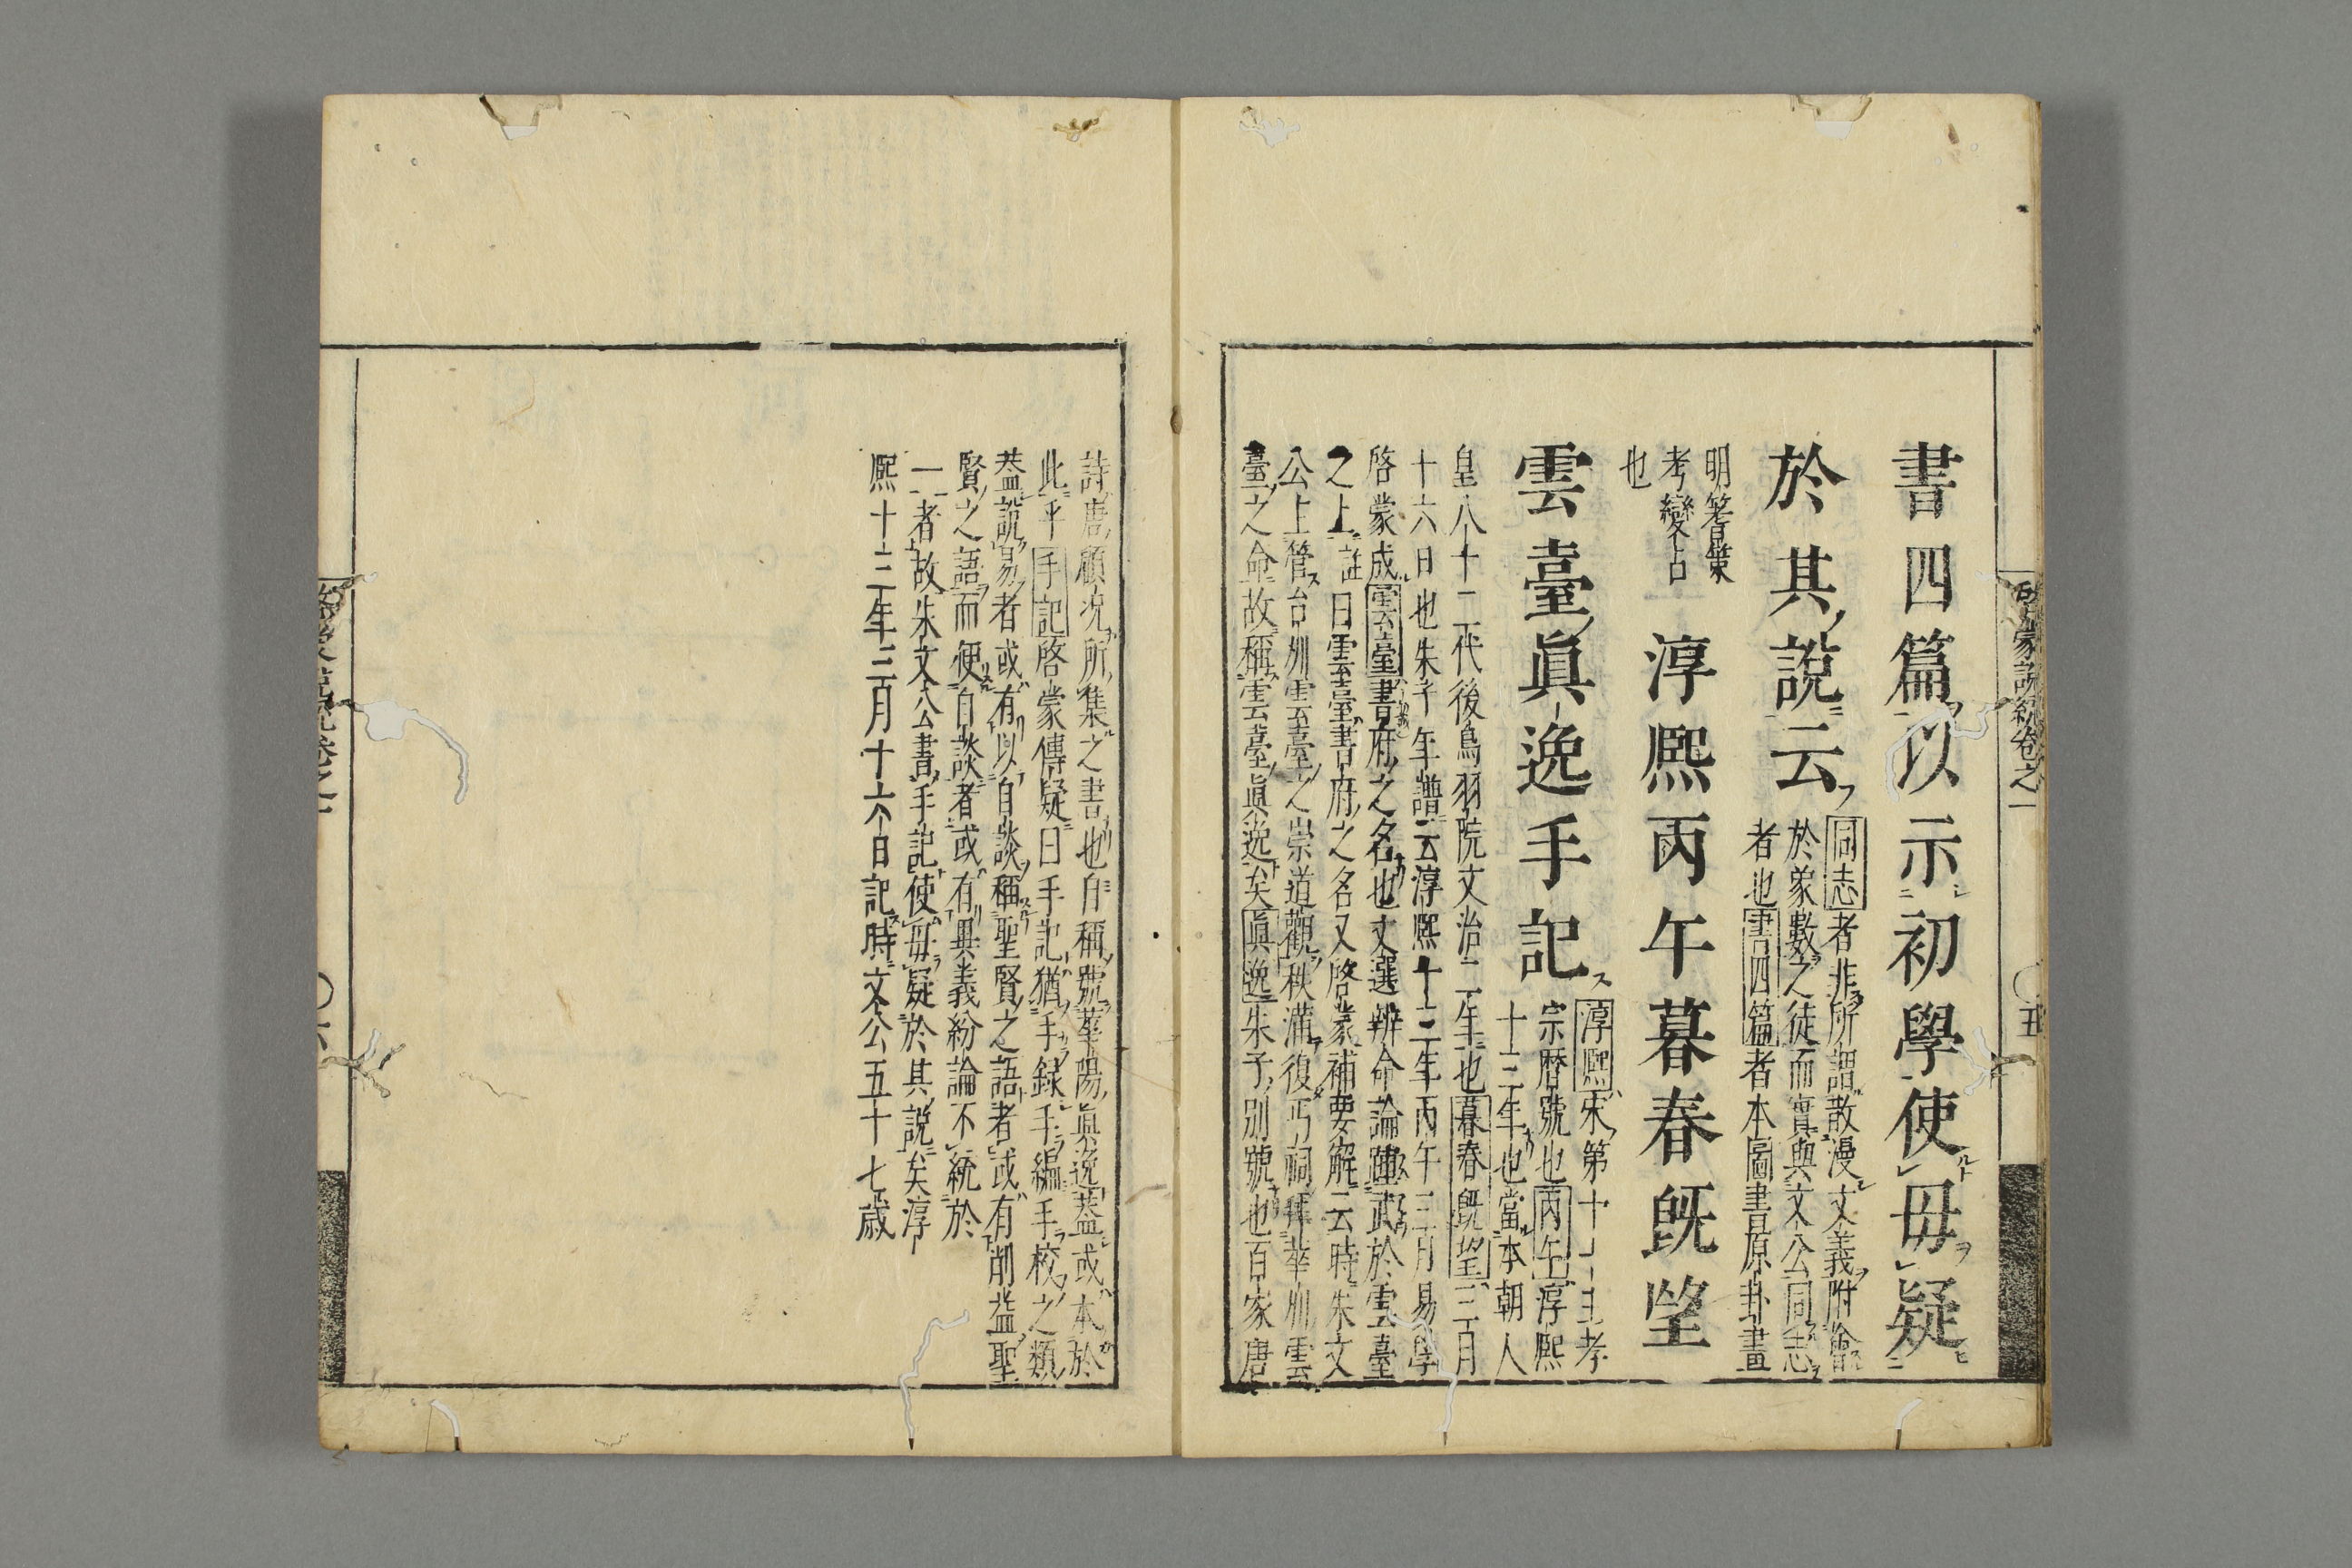 啓蒙說統卷之一
五
書四篇以示初學使毋疑
於其說云
同志者非所謂散漫文義附會
於象數之徒而實與文公同志
者也書四篇者本圖書原卦畫
明蓍策
考變占
也
淳熙丙午暮春旣望
雲臺眞逸手記
淳熙宋第十一主孝
宗曆號也丙午淳熙
十三年也當本朝人
皇八十二代後鳥羽院文治二年也暮春旣望三月
十六日也朱子年譜云淳熙十三年丙午三月易學
啓蒙成雲臺書府之名也文選辨命論踵武於雲臺
之上註曰雲臺書府之名又啓蒙補要解云時朱文
公上管台州雲臺之崇道觀秩滿復丐祠拜華州雲
臺之命故稱雲臺眞逸矣眞逸朱子別號也百家唐
詩唐顧况所集之書也自稱號華陽眞逸蓋或本於
此乎手記啓蒙傳疑曰手記猶手錄手編手校之類
蓋說易者或有以自談稱聖賢之語者或有削益聖
賢之語而便自談者或有異義紛論不統於
一者故朱文公書手記使毋疑於其說矣淳
熙十三年三月十六日記時文公五十七歲